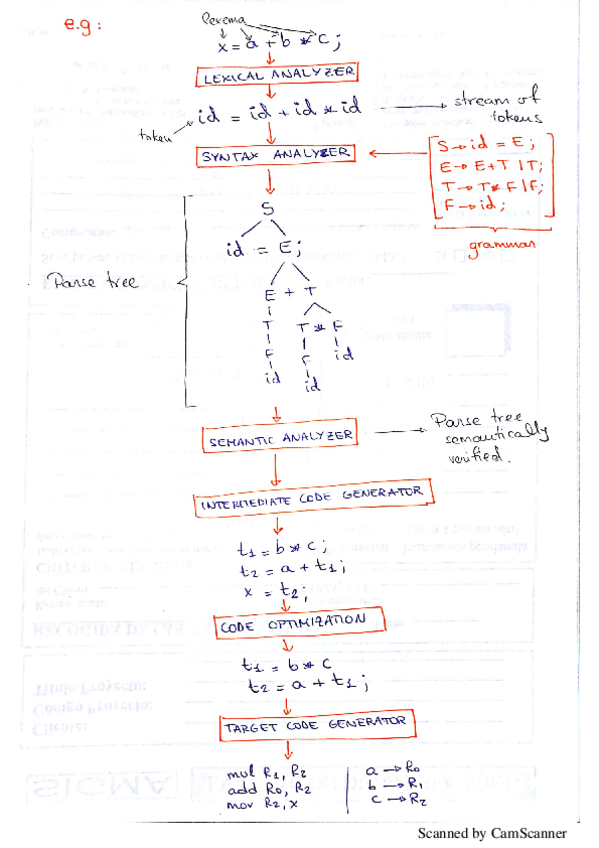 e.g:
lexema
x = a + b * c;
LEXICAL ANALYZER
id = id + id * id
stream of
tokens
token
SYNTAX ANALYZER
S → id = E;
E → E + T | T;
T → T * F | F;
F → id;
grammar
S
id = E;
E + T
T T * F
F F id
id id
Parse tree
SEMANTIC ANALYZER
Parse tree
semantically
verified.
INTERMEDIATE CODE GENERATOR
t1 = b * c;
t2 = a + t1;
x = t2;
CODE OPTIMIZATION
t1 = b * c
t2 = a + t1;
TARGET CODE GENERATOR
mul R1, R2
add R0, R2
mov R2, x
a → R0
b → R1
c → R2
Scanned by CamScanner